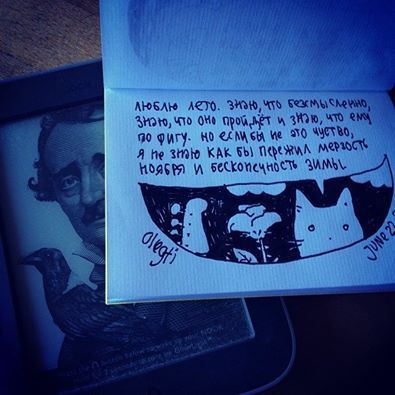 люблю лето. знаю, что безсмысленно,
знаю, что оно пройдёт и знаю, что ему
по фигу. но если бы не это чуство,
я не знаю как бы пережил мерзость
ноября и бесконечность зимы
olegti
June 2